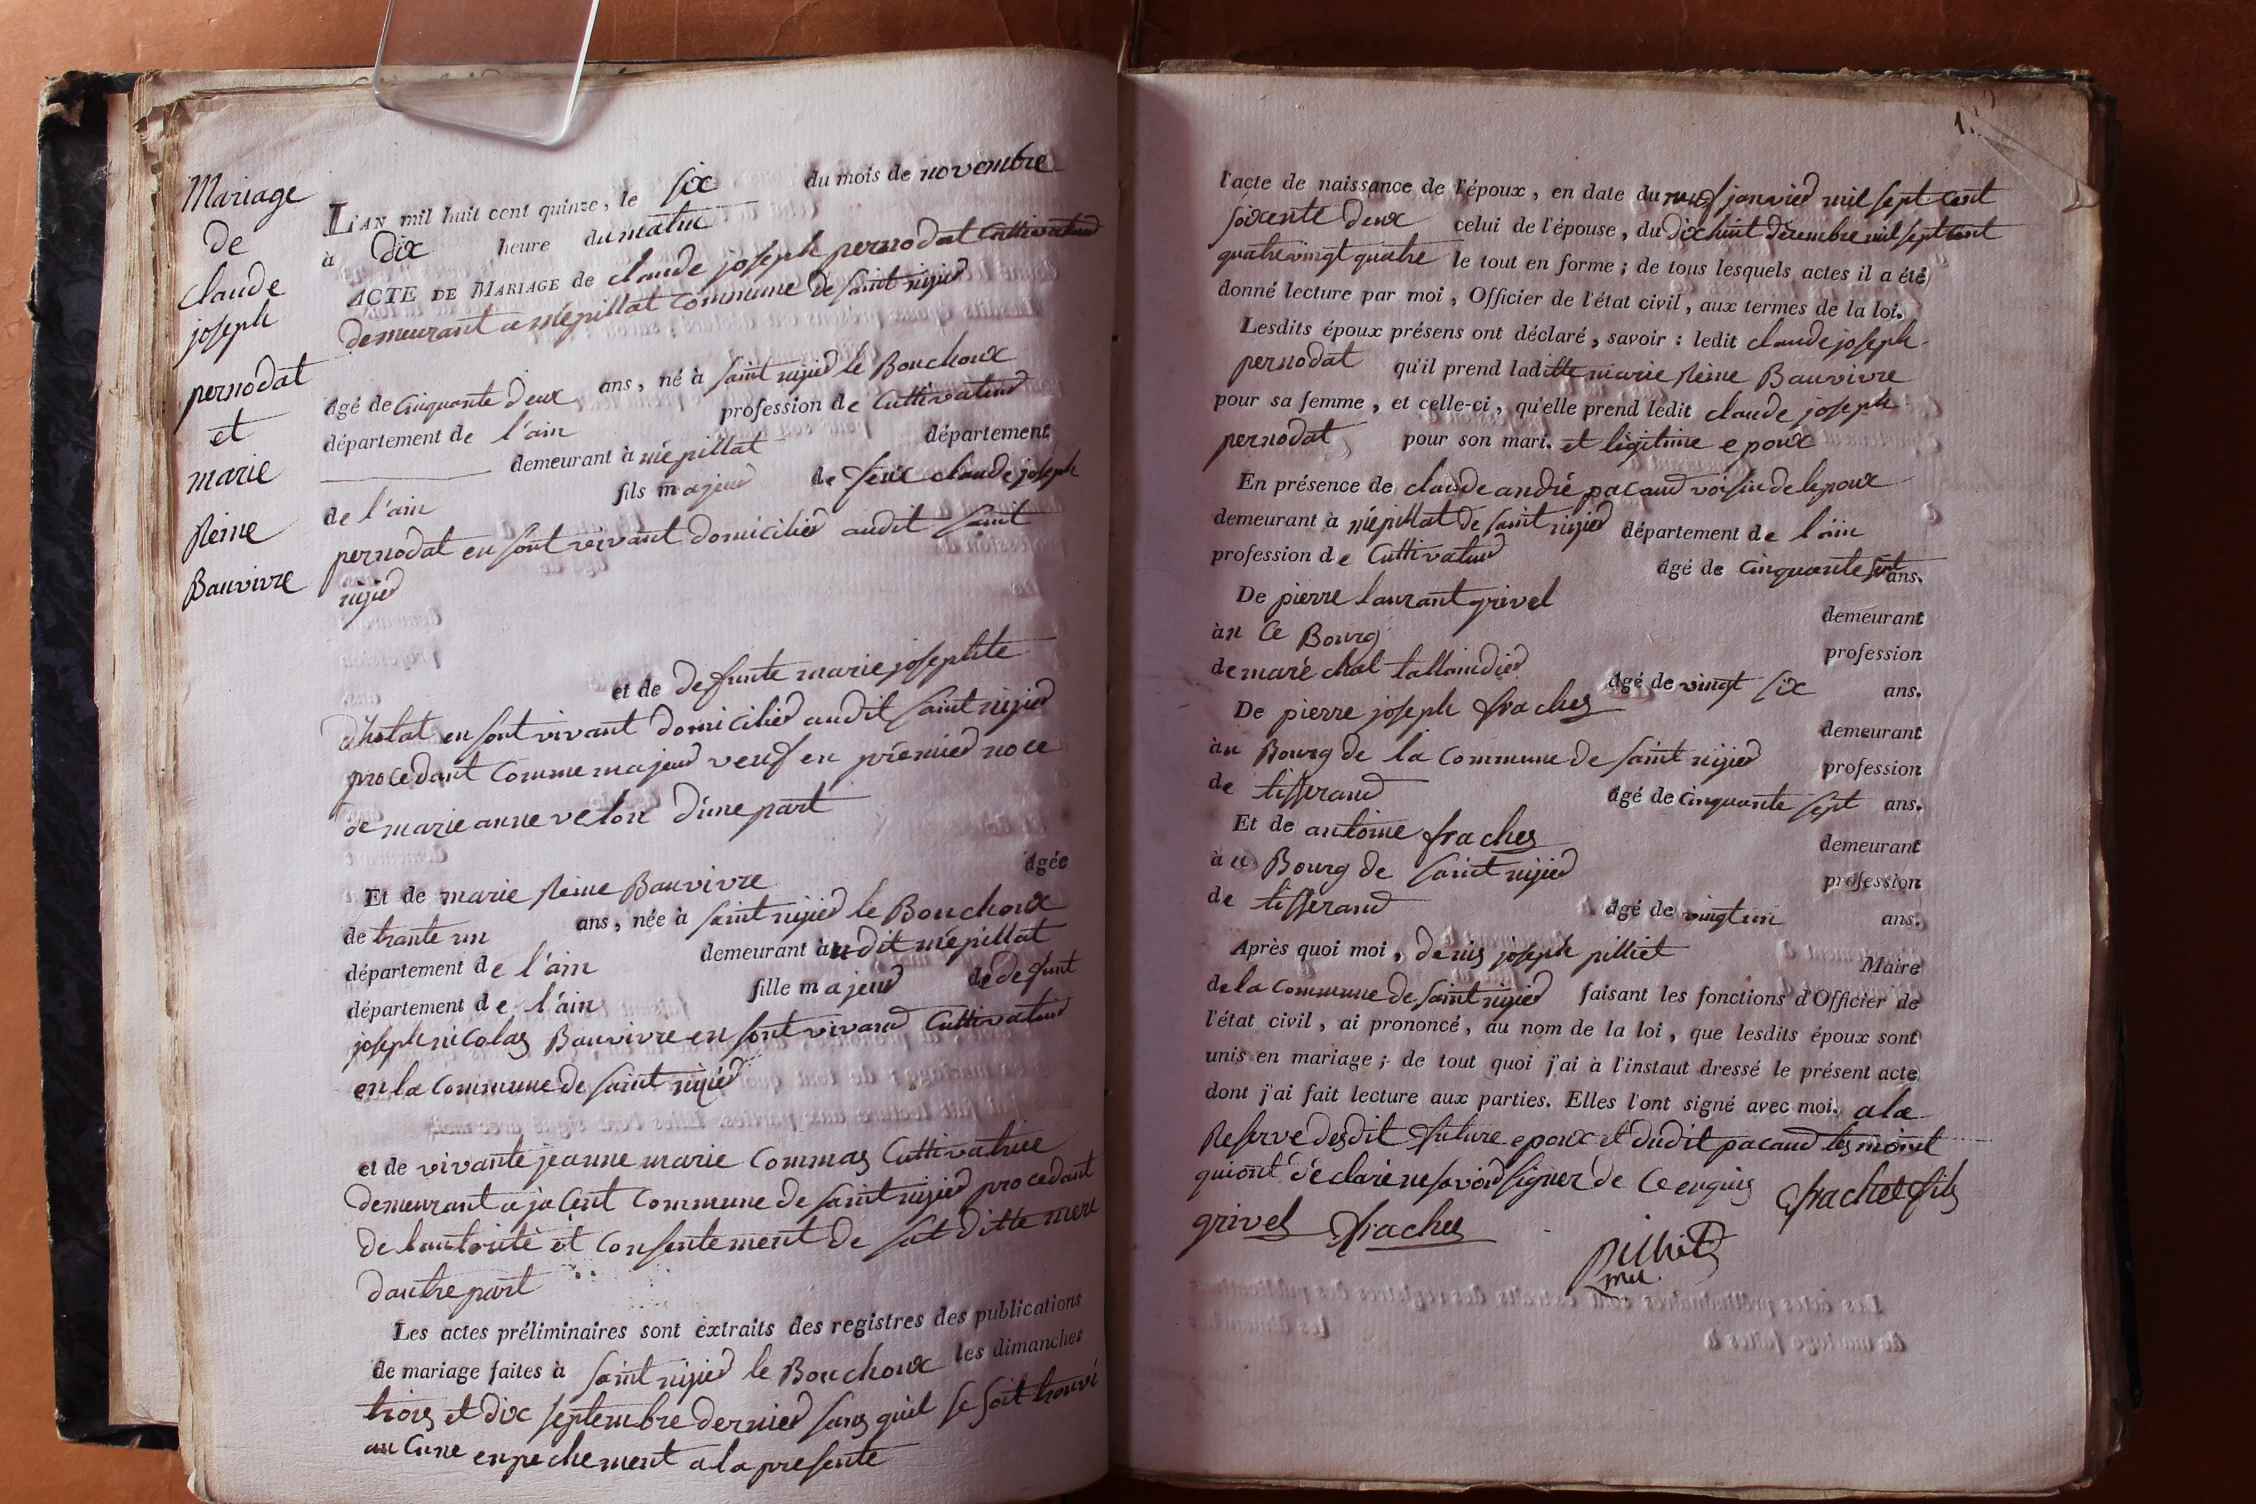 Mariage
de
claude
joseph
pernodat
et
marie
Reine
Bauvivre
L'AN mil huit cent quinze, le six du mois de novembre
à dix heure du matin
ACTE DE MARIAGE de claude joseph pernodat Cultivateur
demeurant a mépillat commune de saint nizier
âgé de cinquante deux ans, né à saint nizier le Bouchoux
département de l'ain profession de Cultivateur
demeurant à mépillat département
de l'ain fils majeur de feux claude joseph
pernodat en sont vivant domicilier audit saint
nizier
et de defunte marie josephte
en sont vivant domicilier audit saint nizier
procedant comme majeur veuf en prémier noce
de marie anne velon d'une part
Et de marie Reine Bauvivre âgée
de trante un ans, née à saint nizier le Bouchoux
département de l'ain demeurant àu dit mépillat
département de l'ain fille majeur de defunt
joseph nicolas Bauvivre en sont vivand Cultivateur
en la commune de saint nizier
et de vivante jeanne marie Commas Cultivatrice
demeurant a jaCent commune de saint nizier procedant
de lautorité et consentement de sat ditte mere
dautre part
Les actes préliminaires sont extraits des registres des publications
de mariage faites à saint nizier le Bouchoux les dimanches
trois et dix septembre dernier sans quil se soit trouvé
au Cune enpechement a la presente
l'acte de naissance de l'époux, en date du neuf janvier mil sept cent
soixente deux celui de l'épouse, du dix huit décembre mil sept cent
quatre vingt quatre le tout en forme; de tous lesquels actes il a été
donné lecture par moi, Officier de l'état civil, aux termes de la loi.
Lesdits époux présens ont déclaré, savoir: ledit claude joseph
pernodat qu'il prend laditte marie Reine Bauvivre
pour sa femme, et celle-ci, qu'elle prend ledit claude joseph
pernodat pour son mari. et légitime epoux
En présence de claude andré pacaud voisin de lepoux
demeurant à mépillat de saint nizier département de l'ain
profession de Cultivateur âgé de cinquante sept ans.
De pierre laurant grivel demeurant
àn Ce Bourg profession
de maré chal tallandier âgé de vingt six ans.
De pierre joseph fraches demeurant
àu Bourg de la commune de saint nizier profession
de tisserand âgé de cinquante sept ans.
Et de antoine fraches demeurant
à u Bourg de saint nizier profession
de tisserand âgé de vingt un ans.
Après quoi moi, denis joseph pilliet Maire
de la commune de saint nizier faisant les fonctions d'Officier de
l'état civil, ai prononcé, au nom de la loi, que lesdits époux sont
unis en mariage; de tout quoi j'ai à l'instaut dressé le présent acte
dont j'ai fait lecture aux parties. Elles l'ont signé avec moi. a la
Reserve desdit future epoux et dudit pacaud tesmoint
qui ont déclaré ne savoir signer de Ce enquis frachet fils
grivel fraches
Pilliet